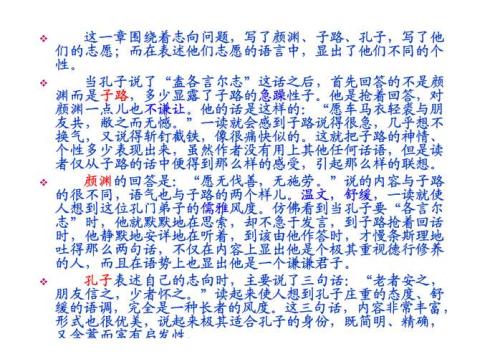 这一章围绕着志向问题，写了颜渊、子路、孔子，写了他
们的志愿；而在表述他们志愿的语言中，显出了他们不同的个
性。
当孔子说了“盍各言尔志”这话之后，首先回答的不是颜
渊而是子路，多少显露了子路的急躁性子。他是抢着回答，对
颜渊一点儿也不谦让。他的话是这样的：“愿车马衣轻裘与朋
友共，敝之而无憾。”一读就会感到子路说得很急，几乎想不
换气，又说得斩钉截铁，像很痛快似的。这就把子路的神情、
个性多少表现出来，虽然作者没有用上其他任何话语，但是读
者仅从子路的话中便得到那么样的感受，引起那么样的联想。
颜渊的回答是：“愿无伐善，无施劳。”说的内容与子路
的很不同，语气也与子路的两个样儿。温文，舒缓，一读就使
人想到这位孔门弟子的儒雅风度。仿佛看到当孔子要“各言尔
志”时，他就默默地在思索，却不急于发言，到子路抢着回话
时，他静默地安详地在听着，到该由他作答时，才慢条斯理地
吐得那么两句话，不仅在内容上显出他是个极其重视德行修养
的人，而且在语势上也显出他是一个谦谦君子。
孔子表述自己的志向时，主要说了三句话：“老者安之，
朋友信之，少者怀之。”读起来使人想到孔子庄重的态度、舒
缓的语调，完全是一种长者的风度。这三句话，内容非常丰富，
形式也很优美，说起来极其适合孔子的身份，既简明、精确，
又含蓄而富有启发性。